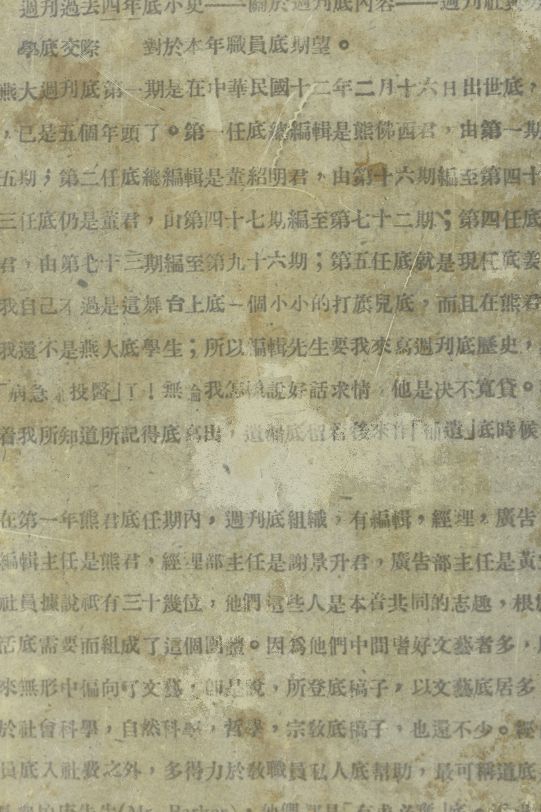 週刊過去四年底小史——關於週刊底內容——週刊社對
學底交際　對於本年職員底期望。
燕大週刊底第一期是在中華民國十二年二月十六日出世底，
，已是五個年頭了。第一任底總編輯是熊佛西君，由第一期
五期；第二任底總編輯是董紹明君，由第十六期編至第四十
三任底仍是董君，由第四十七期編至第七十二期；第四任底
君，由第七十三期編至第九十六期；第五任底就是現任底姜
我自己不過是這舞台上底一個小小的打旗兒底，而且在熊君
我還不是燕大底學生；所以編輯先生要我來寫週刊底歷史，
「病急 投醫」了！無論我怎樣說好話求情，他是决不寬貸。
着我所知道所記得底寫出，遺漏底 後來作「補遺」底時候
在第一年熊君底任期內，週刊底組織，有編輯，經理，廣告
編輯主任是熊君，經理部主任是謝景升君，廣告部主任是黃
社員據說祇有三十幾位，他們這些人是本着共同的志趣，根
活底需要而組成了這個團體。因爲他們中間嗜好文藝者多，
來無形中偏向了文藝，即是說，所登底稿子，以文藝底居多
於社會科學，自然科學，哲學，宗教底稿子，也還不少。經
員底入社費之外，多得力於敎職員私人底帮助，最可稱道底
(Mr. Barker)，他們